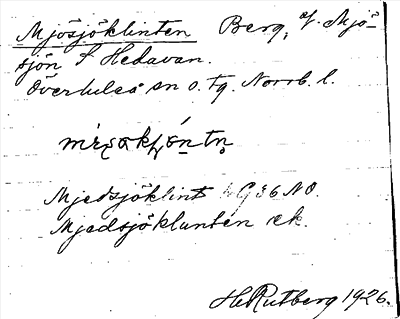 Mjösjöklinten Berg, v. Mjö-
sjön S Hedavan.
Överluleå sn o. tg. Norrb. l.
Mjedsjöklint G36 NO.
Mjedsjöklunten ek.
H Rutberg 1926.